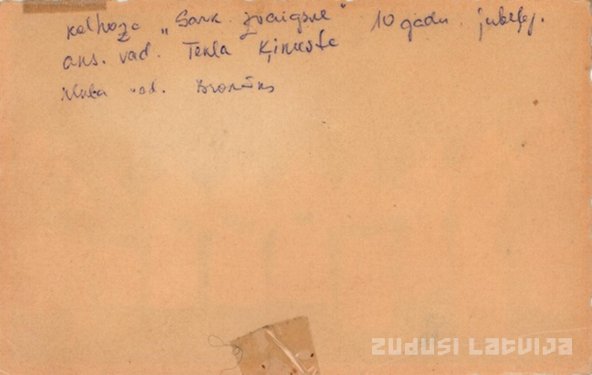 kolhoza „Sark. zvaigzne" 10 gadu jubilej.
ans. vad. Tekla Ķimeste
kluba vad.
ZUDUSI LATVIJA